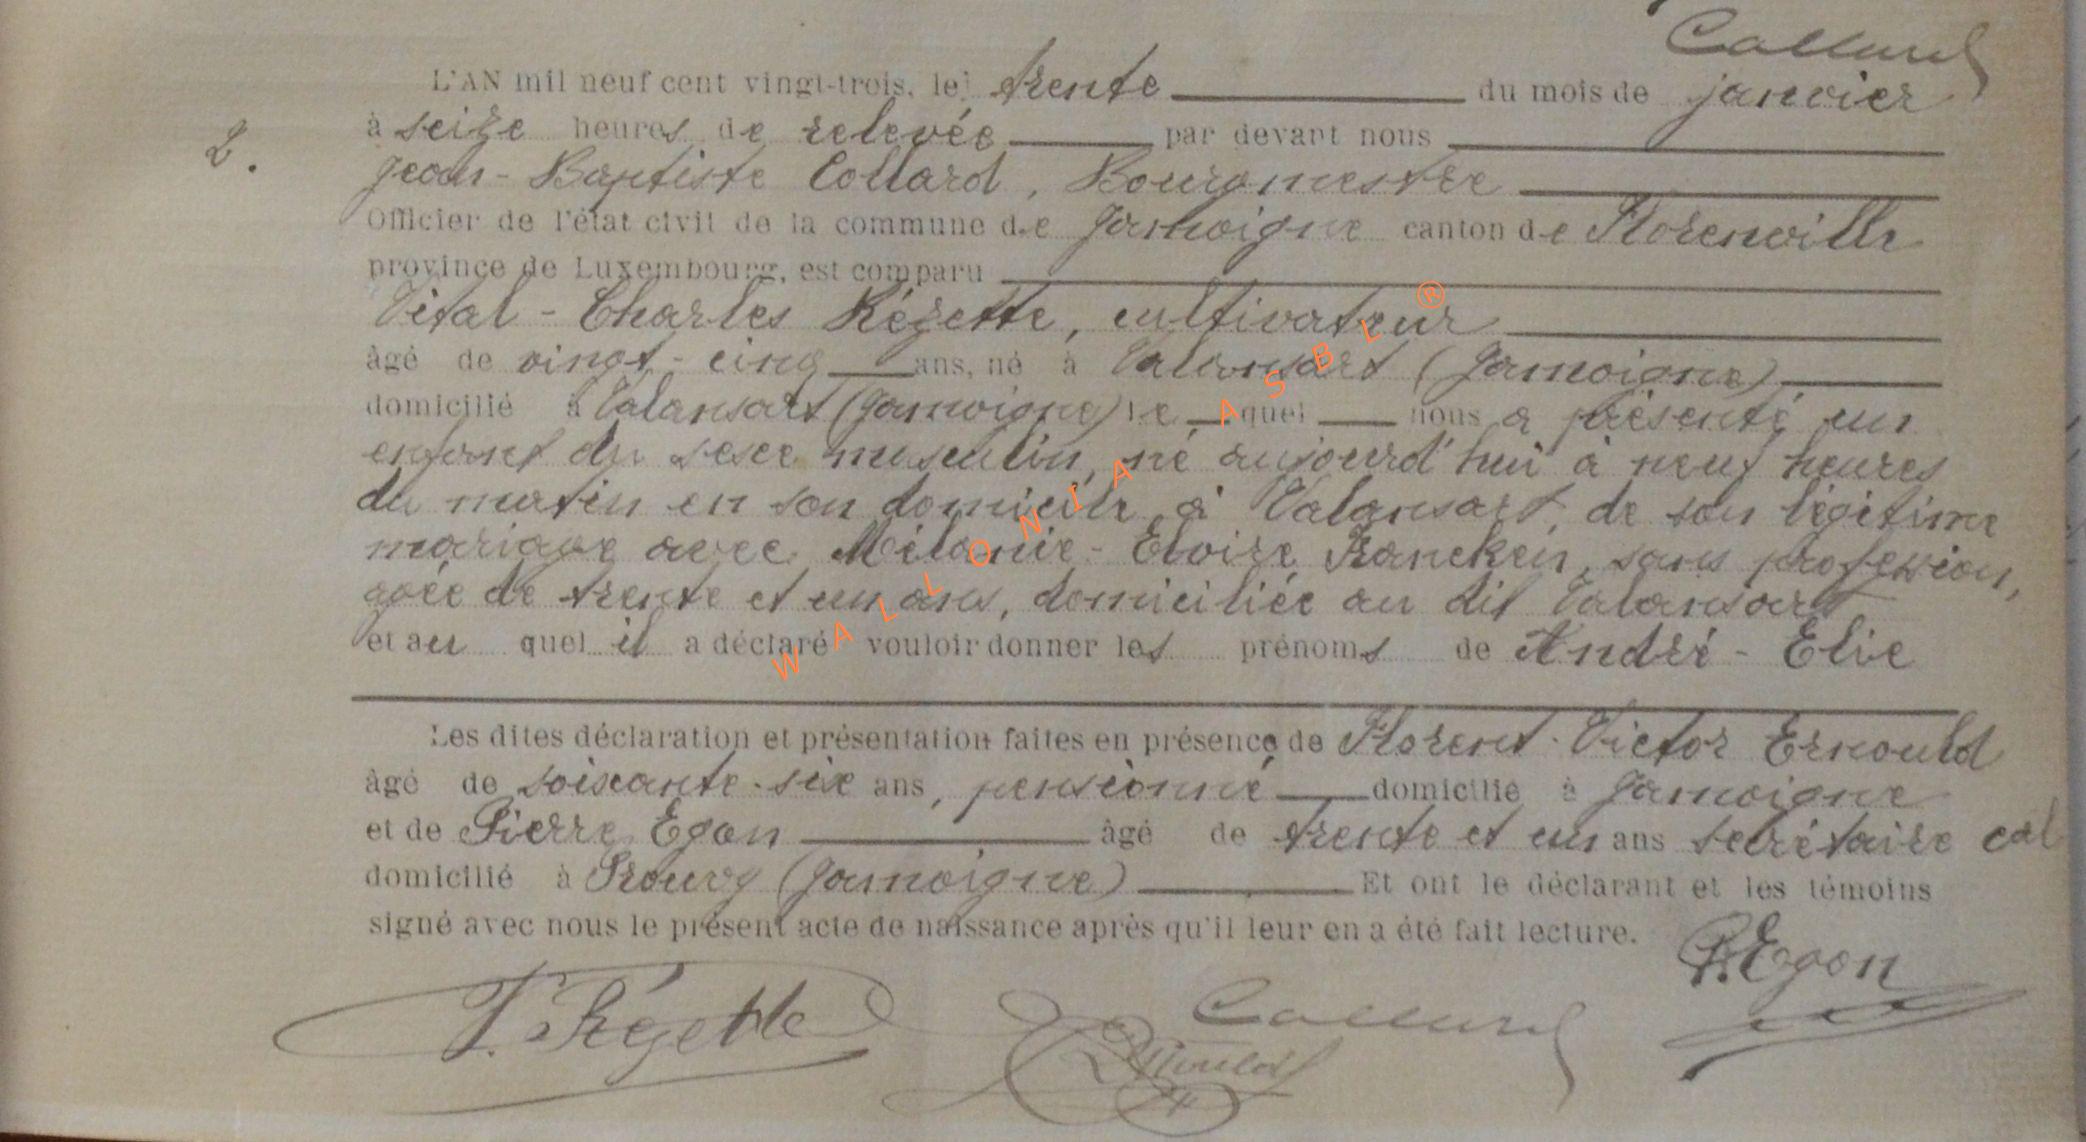 Collard
L'AN mil neuf cent vingt-trois, le trente du mois de janvier
2. à seize heures de relevée par devant nous
Jean-Baptiste Collard, Bourgmestre
Officier de l'état civil de la commune de Jamoigne canton de Florenville
province de Luxembourg, est comparu
Vital-Charles Régette, cultivateur
âgé de vingt-cinq ans, né à Valansart (Jamoigne)
domicilié à Valansart (Jamoigne) le quel nous a présenté un
enfant du sexe masculin, né aujourd'hui à neuf heures
du matin en son domicile à Valansart, de son légitime
mariage avec Mélanie-Eloïse Francken, sans profession,
agée de trente et un ans, domiciliée au dit Valansart
et au quel il a déclaré vouloir donner les prénoms de André-Elie
Les dites déclaration et présentation faites en présence de Florent-Victor Ernould
âgé de soixante-six ans, pensionné domicilié à Jamoigne
et de Pierre Egon âgé de trente et un ans secrétaire cal
domicilié à Prouvy (Jamoigne) Et ont le déclarant et les témoins
signé avec nous le présent acte de naissance après qu'il leur en a été fait lecture.
P. Egon
V. Régette Collard
Ernould
WALLONIA ASBL ®